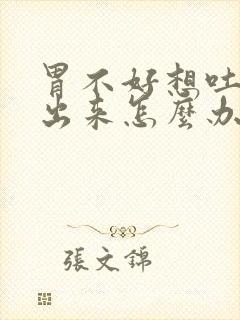 胃不好想吐
出来怎麼办
張文錦